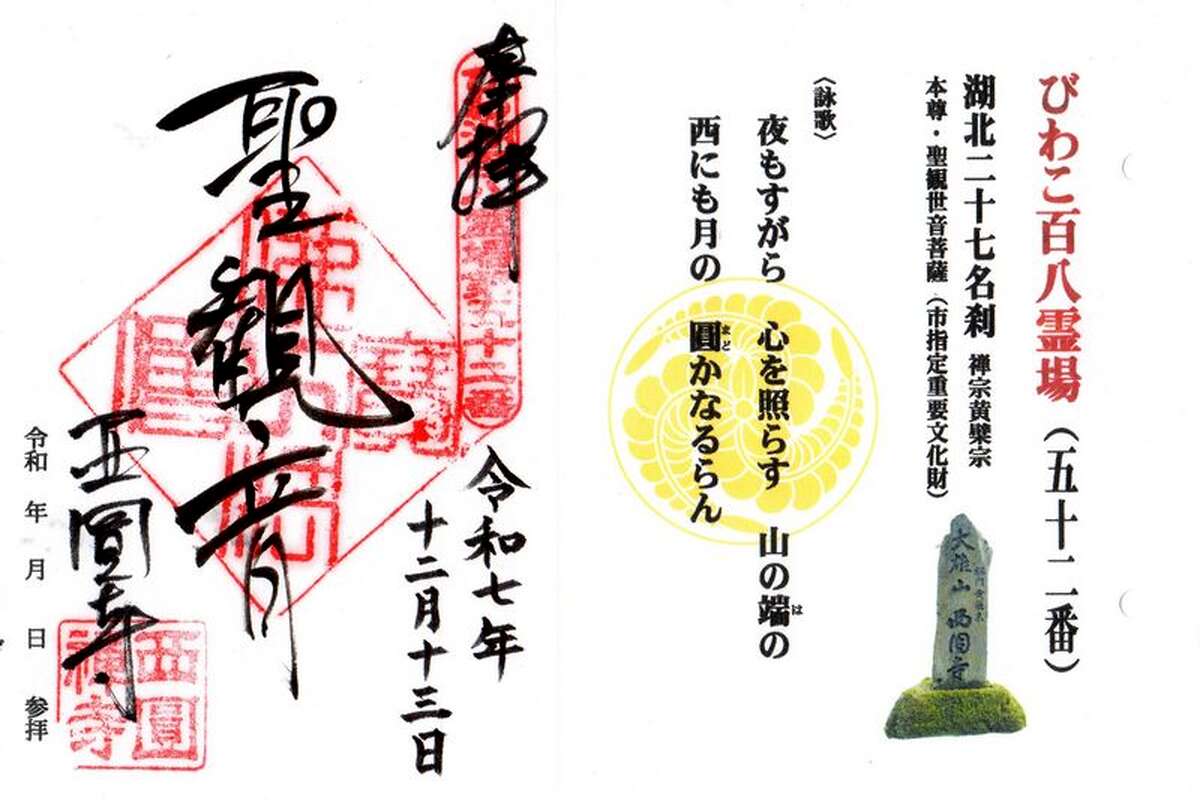 びわこ百八霊場（五十二番）
湖北二十七名刹 禅宗黄檗宗
本尊・聖観世音菩薩（市指定重要文化財）
大雄山 西圓寺
〈詠歌〉
夜もすがら 心を照らす 山の端の
は
西にも月の 圓かなるらん
まど
奉拝
聖観音
令和七年
十二月十三日
西圓寺
西圓
禅寺
令和 年 月 日 参拝